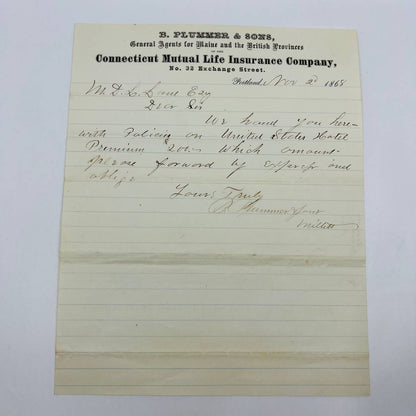 B. PLUMMER & SONS,
General Agents for Maine and the British Provinces
OF THE
Connecticut Mutual Life Insurance Company,
No. 32 Exchange Street.
Portland, Nov 2d 1868
M. D. L. Lane Esq
Dear Sir
We hand you here-
with Policies on United States Hotel
Premium which amount
please forward by express and
oblige
Yours Truly
B. Plummer & Sons